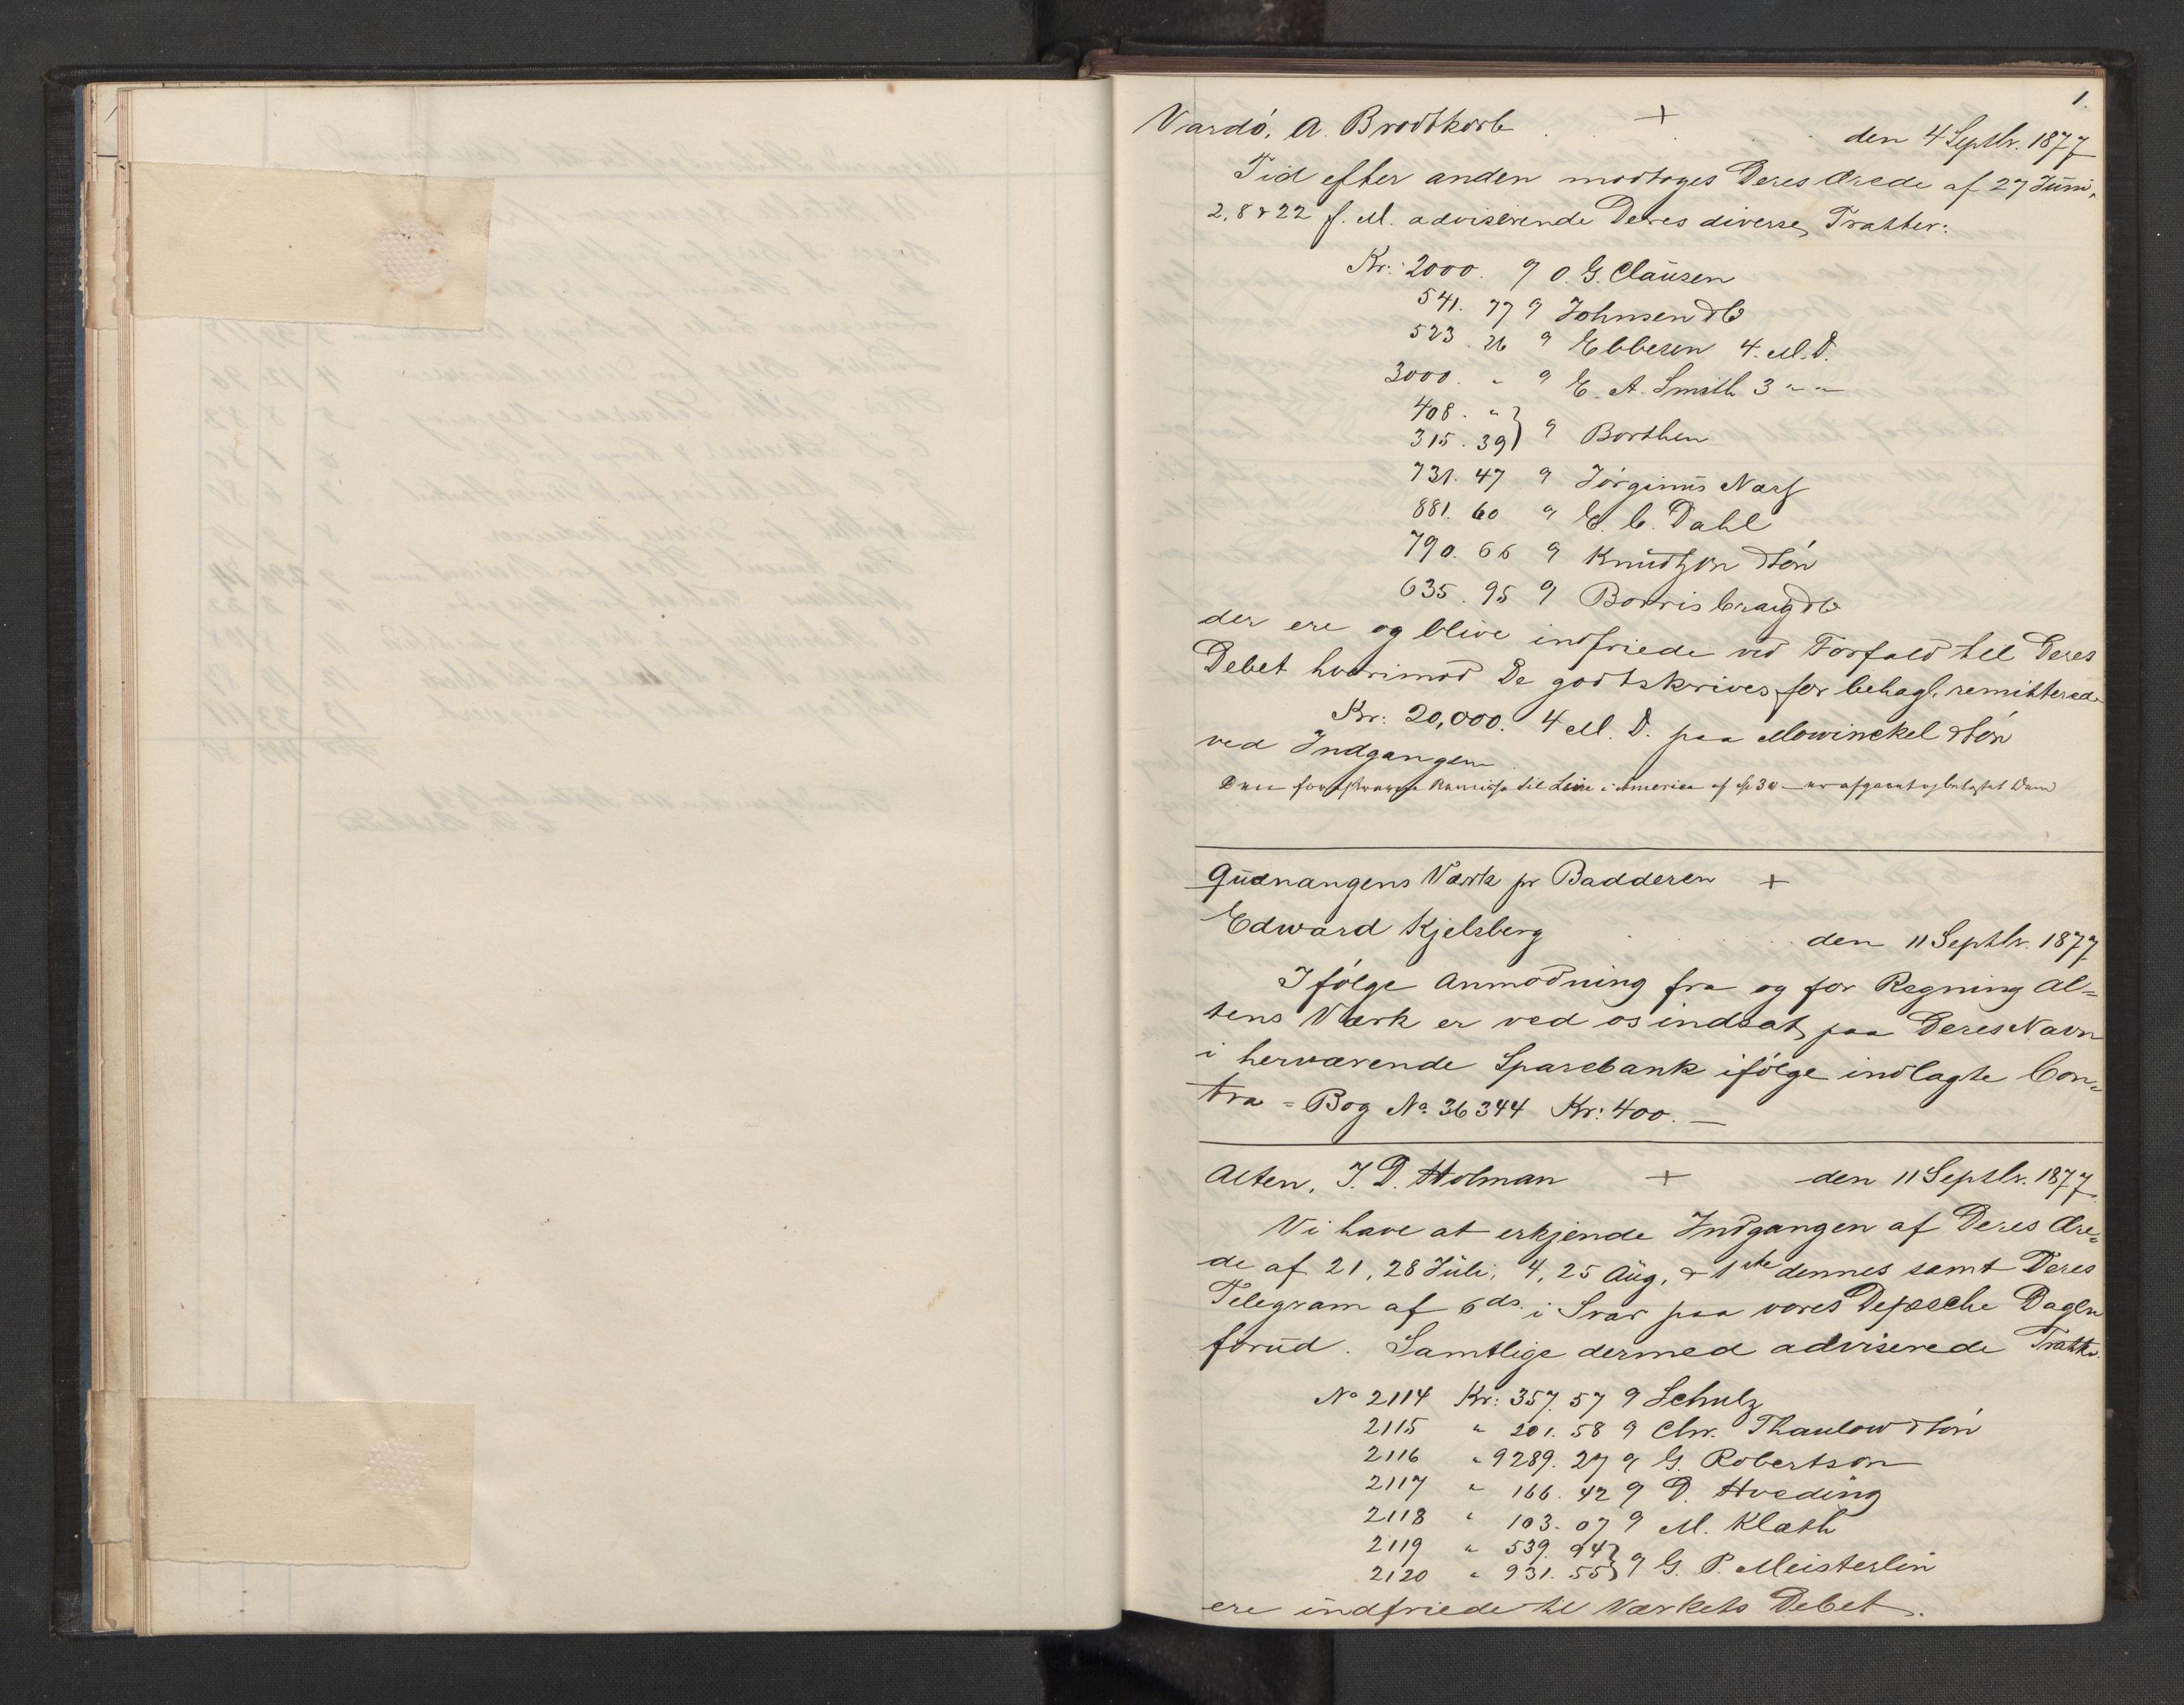 1.
Vardó, A. Brodtkorb + den 4 Septbr. 1877
Tid efter anden modtoges Deres Ærede af 27 Juni,
2, 8 & 22 f. M. adviserende Deres diverse Tratter:
Kr: 2000. 9 O. G. Clausen
541. 77 9 Johnsen & Co
523. 26 9 Ebbesen 4. M. D.
3000. " 9 E. A. Smith 3 " "
408. "
315. 39 } 9 Borthen
731. 47 9 Jörginus Næss
881. 60 9 E. C. Dahl
790. 66 9 Knudtzon & Sön
635. 95 9 Borris Craig & Co
der ere og blive indfriede ved Forfald til Deres
Debet hvorimod De godtskrives for behagl. remitterede
Kr: 20,000. 4 M. D. paa Mowinckel & Sön
ved Indgangen
Den Remisse til i America af 30 — er afgaaet og belastet Dem
Quænangens Værk pr Badderen +
Edward Kjelsberg den 11 Septbr. 1877
Ifólge Anmodning fra og for Regning Al=
tens Værk er ved os indsat paa Deres Navn
i herværende Sparebank ifólge indlagte Con=
tra = Bog No 36344 Kr: 400. —
Alten, J. D. Holman + den 11 Septbr. 1877
Vi have at erkjende Indgangen af Deres Ære=
de af 21, 28 Juli, 4, 25 Aug, & 1ste dennes samt Deres
Telegram af 6 ds. i Svar paa vores Depesche Dagen
forud. Samtlige dermed adviserede Tratter
No 2114 Kr: 357. 57 9 Schulz
2115 " 201. 58 9 Chr. Thaulow & Sön
2116 " 9289. 27 9 G. Robertson
2117 " 166. 42 9 D. Hveding
2118 " 103. 07 9 M. Klath
2119 " 539. 94
2120 " 931. 55 } 9 G. P. Meisterlin
ere indfriede til Værkets Debet.